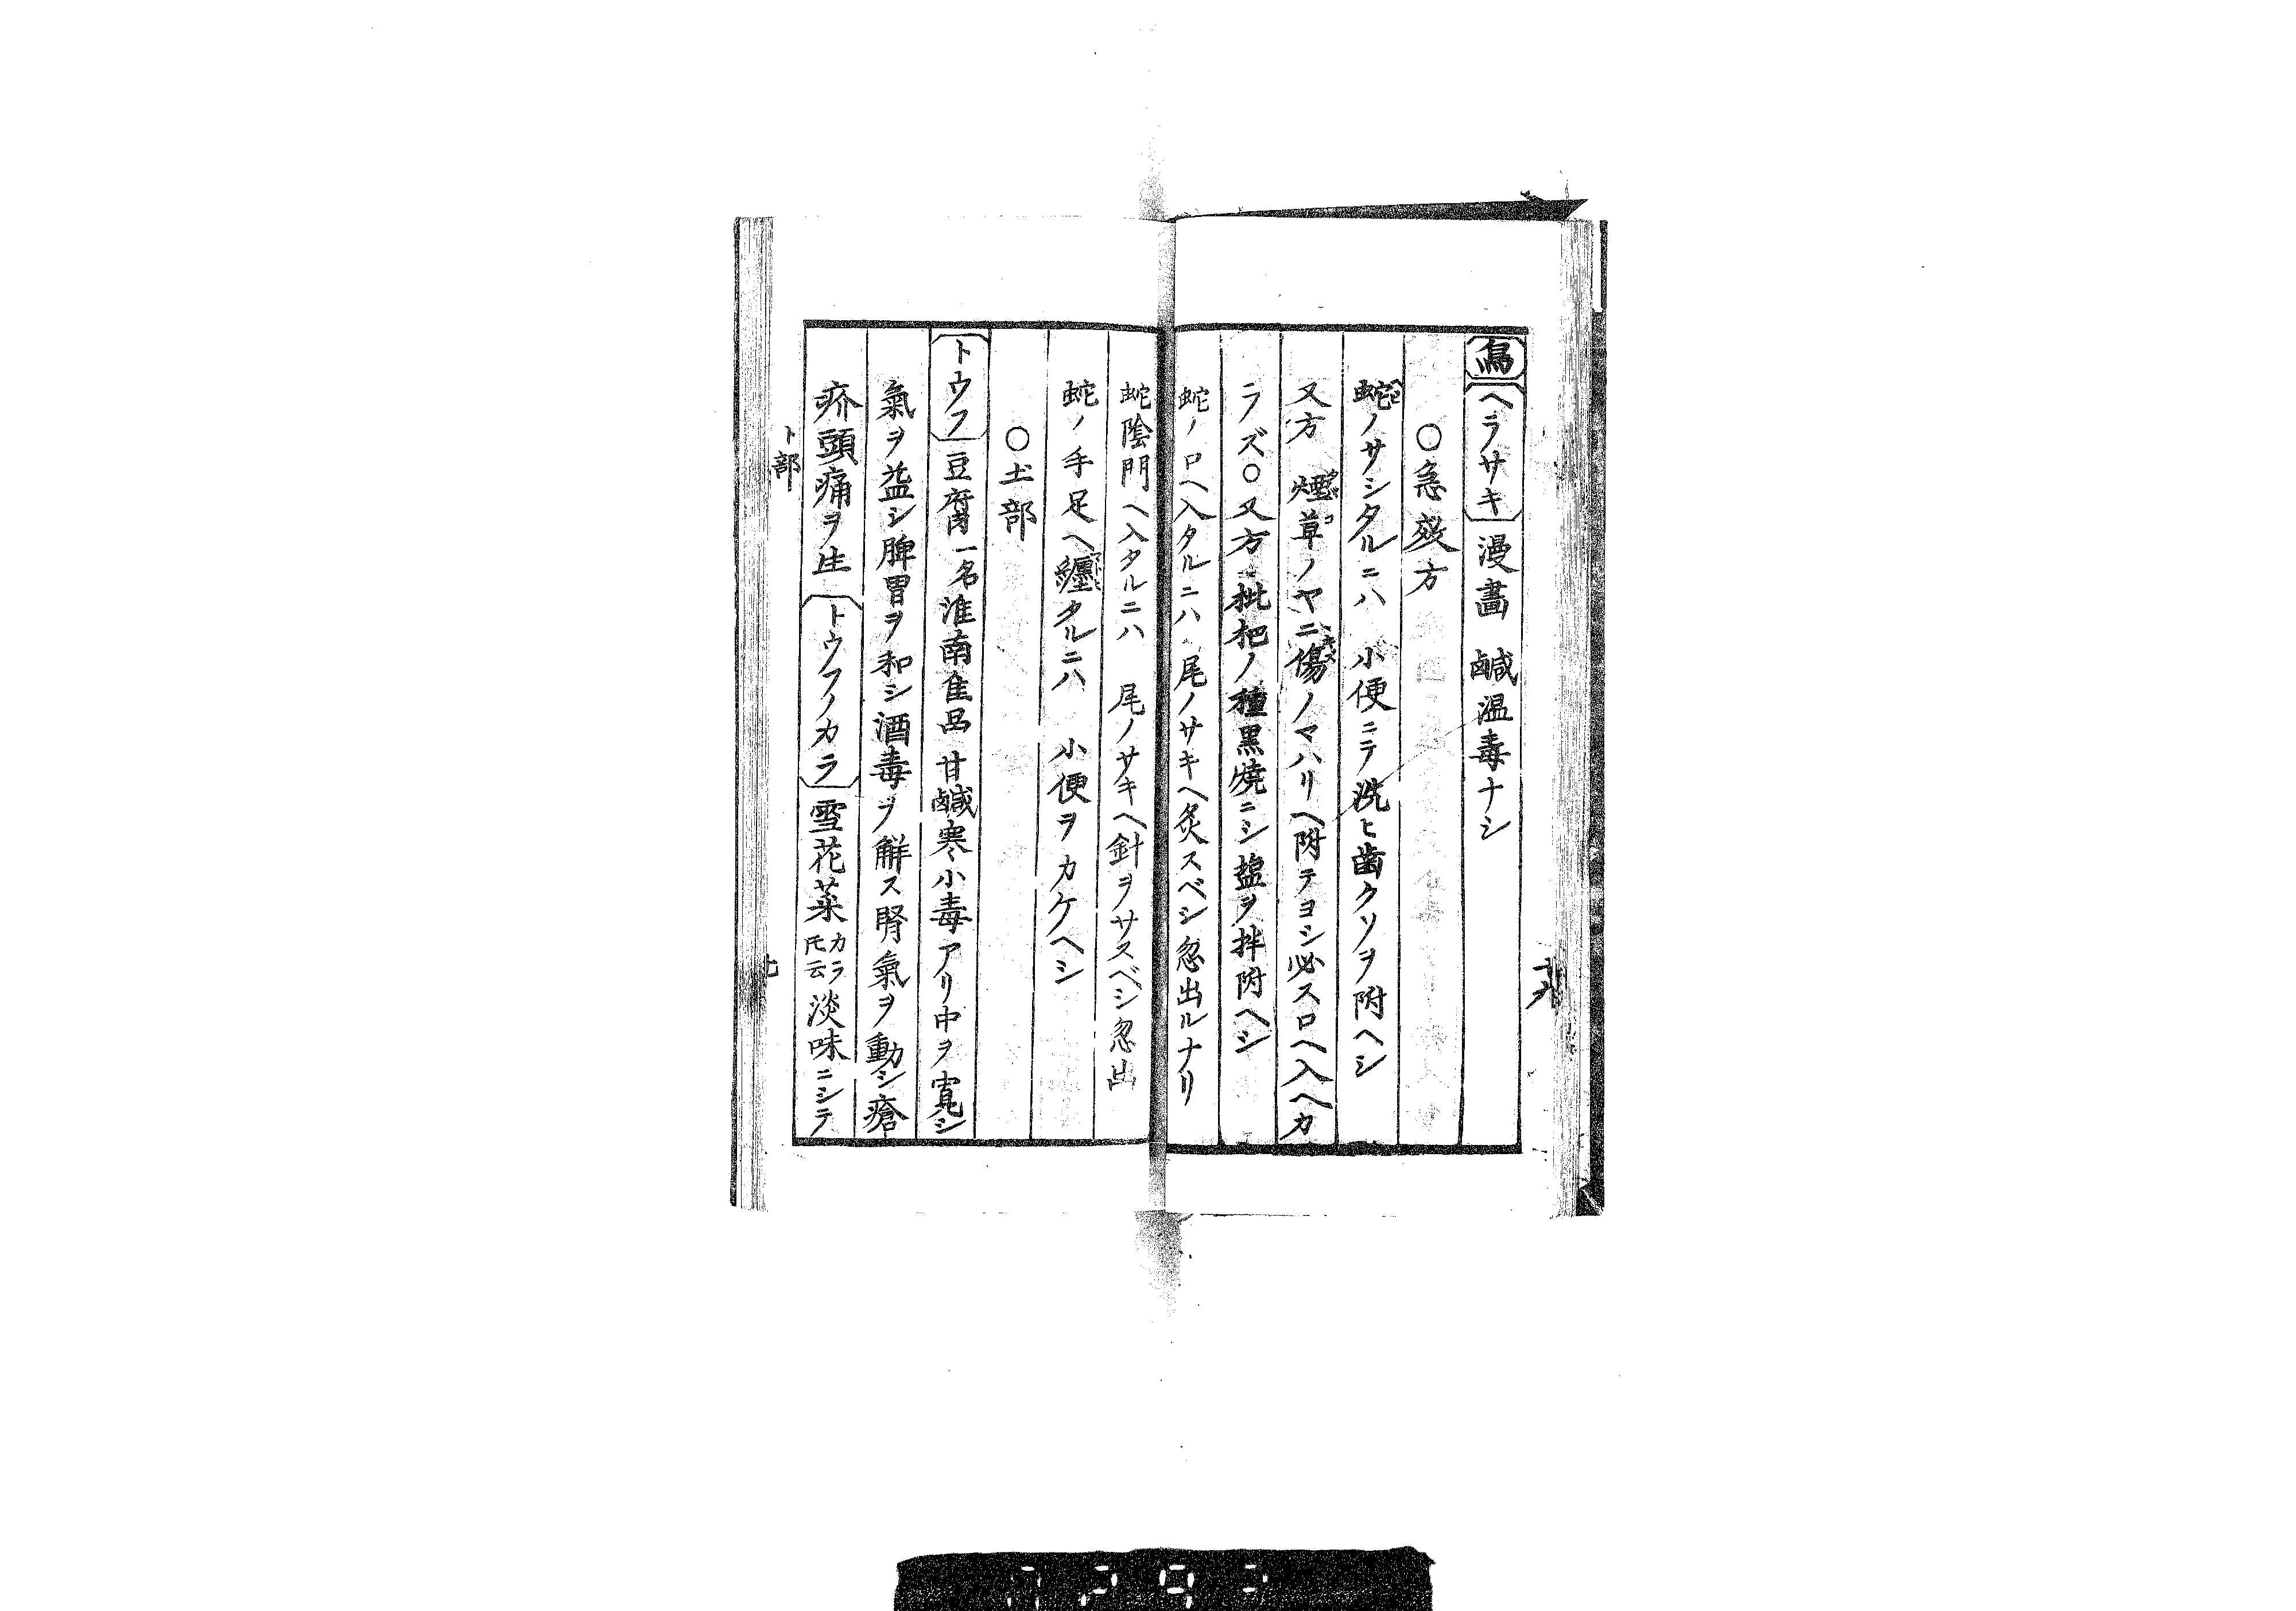 鳥 ヘラサキ 漫畫 鹹温毒ナシ
○急效方
蛇ノサシタルニハ 小便ニテ洗ヒ歯クソヲ附ヘシ
又方 煙草ノヤニ傷ノマハリヘ附テヨシ必ス口ヘ入ヘカ
ラズ○又方 枇杷ノ種黒燒ニシ塩ヲ拌附ヘシ
蛇ノ口ヘ入タルニハ 尾ノサキヘ灸スベシ忽出ルナリ
蛇陰門ヘ入タルニハ 尾ノサキヘ針ヲサスベシ忽出
蛇ノ手足ヘ纒タルニハ 小便ヲカケヘシ
○土部
トウフ 豆腐 一名淮南隹品 甘鹹寒小毒アリ中ヲ寛シ
氣ヲ益シ脾胃ヲ和シ酒毒ヲ解ス腎氣ヲ動シ瘡
疥頭痛ヲ生 トウフノカラ 雪花菜 カラ𪜈云 淡味ニシテ
ト部